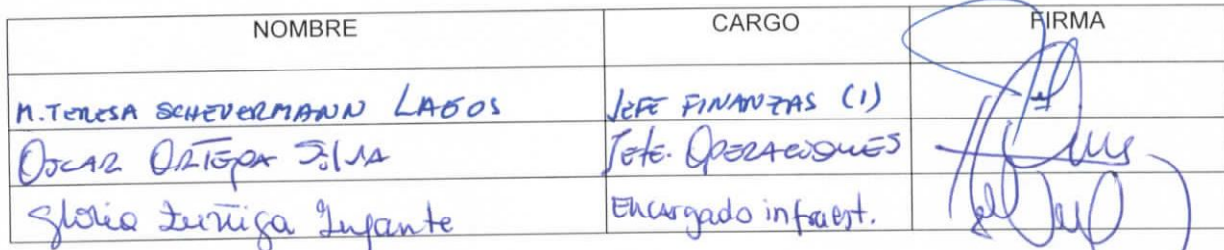 NOMBRE CARGO FIRMA
M. TERESA SCHEVERMANN LAGOS JEFE FINANZAS (1)
OSCAR ORTEGA SILVA Jefe. OPERACIONES
Gloria Zuñiga Infante Encargado infraest.